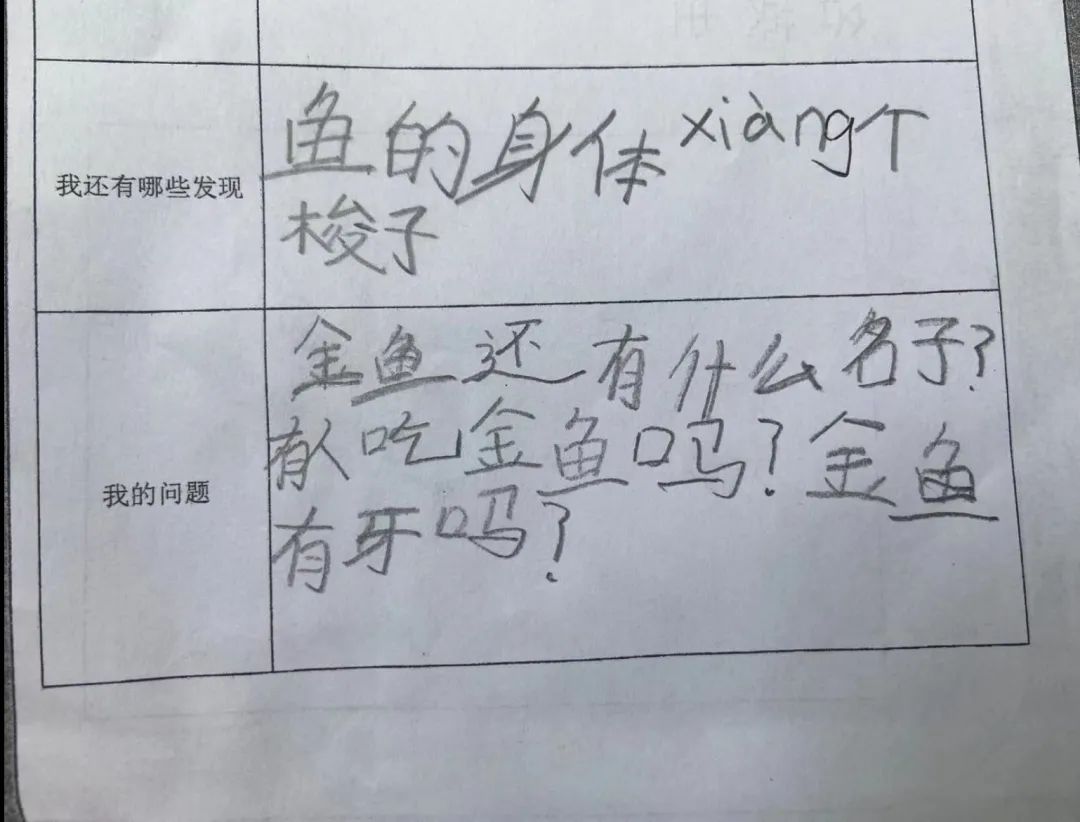 我还有哪些发现
鱼的身体xiàng个
梭子
我的问题
金鱼还有什么名子?
有人吃金鱼吗?金鱼
有牙吗?